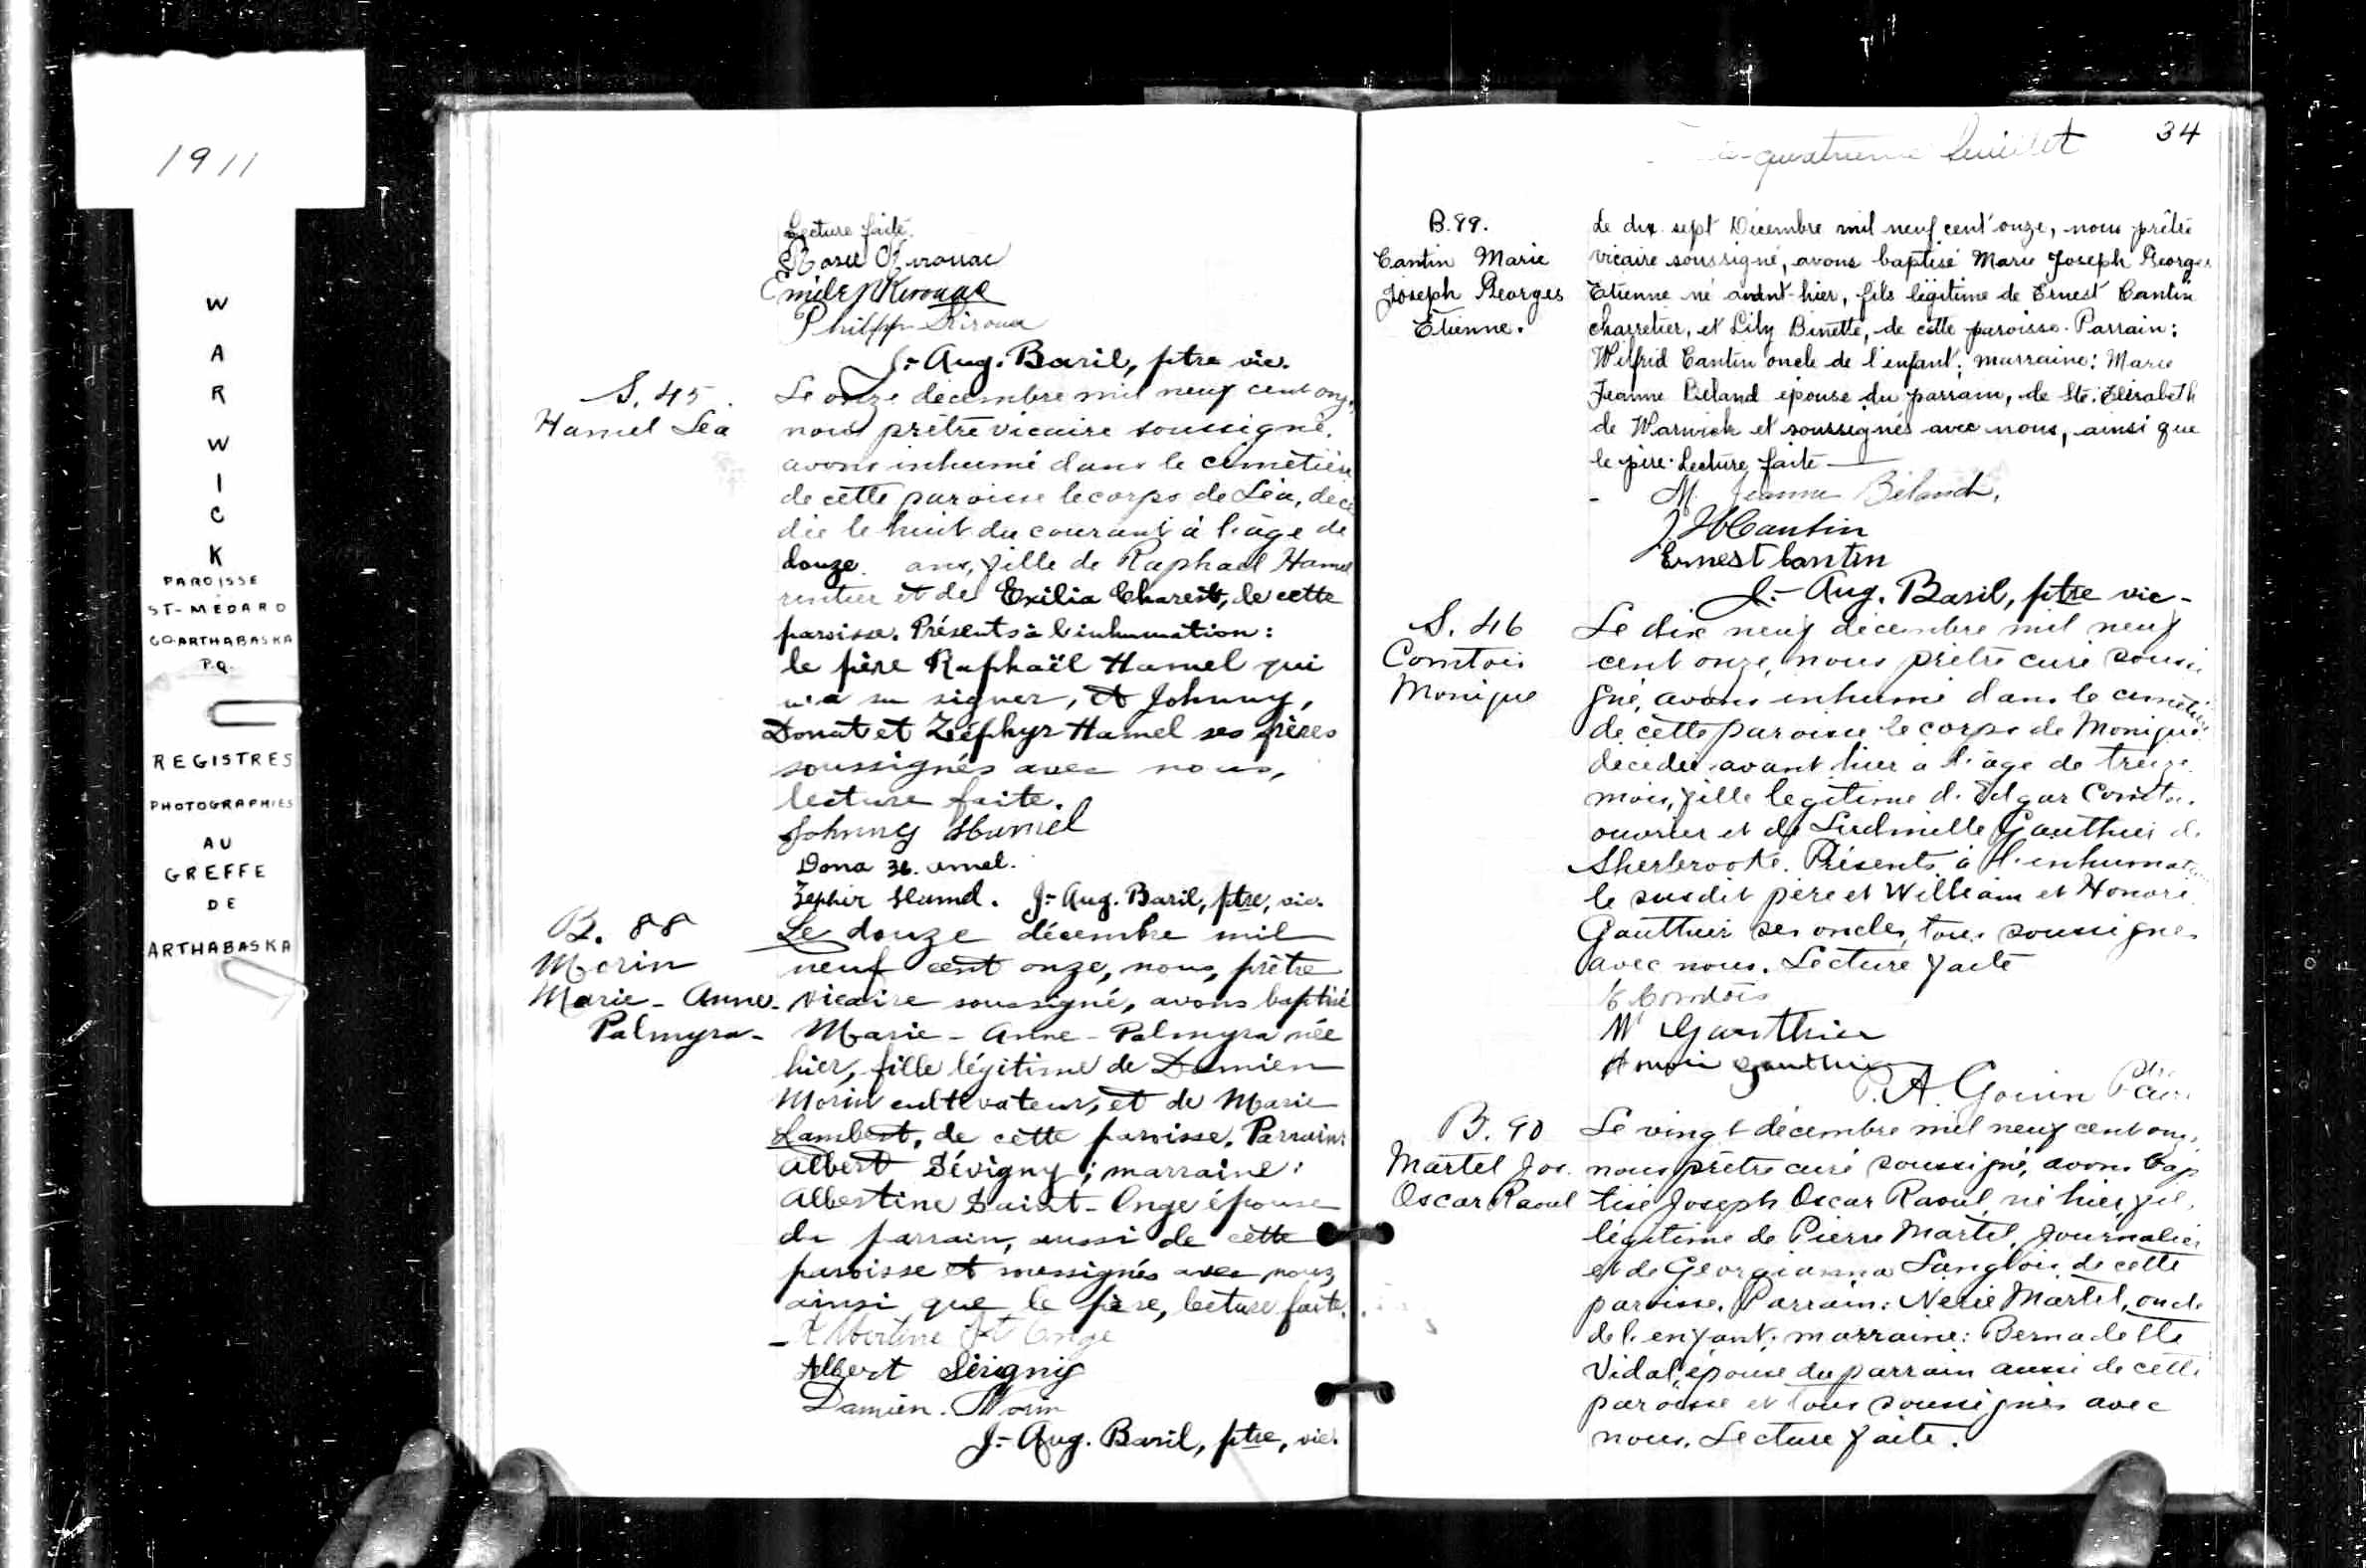 1911
WARWICK
PAROISSE
ST-MÉDARD
CO. ARTHABASKA
P.Q.
REGISTRES
PHOTOGRAPHIES
AU
GREFFE
DE
ARTHABASKA
Lecture faite.
Rosée Kirouac
Emile Kirouac
Philippe Kirouac
J.-Aug. Baril, ptre vic.
S. 45
Hamel Léa
Le onze décembre mil neuf cent onze,
nous prêtre vicaire soussigné,
avons inhumé dans le cimetière
de cette paroisse le corps de Léa, décé
dée le huit du courant à l'âge de
douze ans, fille de Raphael Hamel
rentier et de Exilia Charest, de cette
paroisse. Présents à l'inhumation:
le père Raphaël Hamel qui
n'a su signer, et Johnny,
Donat et Zéphyr Hamel ses frères
soussignés avec nous,
lecture faite.
Johnny Hamel
Dona H. amel.
Zephir Hamel. J.-Aug. Baril, ptre, vic.
B. 88
Morin
Marie-Anne-
Palmyra-
Le douze décembre mil
neuf cent onze, nous, prêtre
vicaire soussigné, avons baptisé
Marie-Anne-Palmyra née
hier, fille légitime de Damien
Morin cultivateur, et de Marie
Lambert, de cette paroisse. Parrain:
Albert Sévigny; marraine:
Albertine Saint-Onge épouse
du parrain, aussi de cette
paroisse et soussignés avec nous,
ainsi que le père, lecture faite.
Albertine St Onge
Albert Sévigny
Damien Morin
J.-Aug. Baril, ptre, vic.
34
-quatrième feuillet
B. 89.
Cantin Marie
Joseph Georges
Étienne.
Le dix sept Décembre mil neuf cent onze, nous prêtre
vicaire soussigné, avons baptisé Marie Joseph Georges
Etienne né avant-hier, fils légitime de Ernest Cantin
charretier, et Lily Binette, de cette paroisse. Parrain:
Wilfrid Cantin oncle de l'enfant; marraine: Marie
Jeanne Béland épouse du parrain, de Ste. Elisabeth
de Warwick et soussignés avec nous, ainsi que
le père. Lecture faite
M. Jeanne Béland,
J. W Cantin
Ernest Cantin
J.-Aug. Baril, ptre vic-
S. 46
Comtois
Monique
Le dix neuf décembre mil neuf
cent onze, nous prêtre curé soussi
gné, avons inhumé dans le cimetière
de cette paroisse le corps de Monique
décédée avant hier à l'âge de treize
mois, fille légitime d'Edgar Comtois
ouvrier et de Ludmille Gauthier de
Sherbrooke. Présents à l'inhumation
le susdit père et William et Honoré
Gauthier ses oncles, tous soussignés
avec nous. Lecture faite
E Comtois
W Gauthier
Honoré Gauthier
P. A. Gouin Ptre Curé
B. 90
Martel Jos.
Oscar Raoul
Le vingt décembre mil neuf cent onze,
nous prêtre curé soussigné, avons bap
tisé Joseph Oscar Raoul, né hier, fils
légitime de Pierre Martel, journalier
et de Georgianna Langlois de cette
paroisse. Parrain: Nérée Martel, oncle
de l'enfant; marraine: Bernadette
Vidal, épouse du parrain aussi de cette
paroisse et tous soussignés avec
nous. Lecture faite.